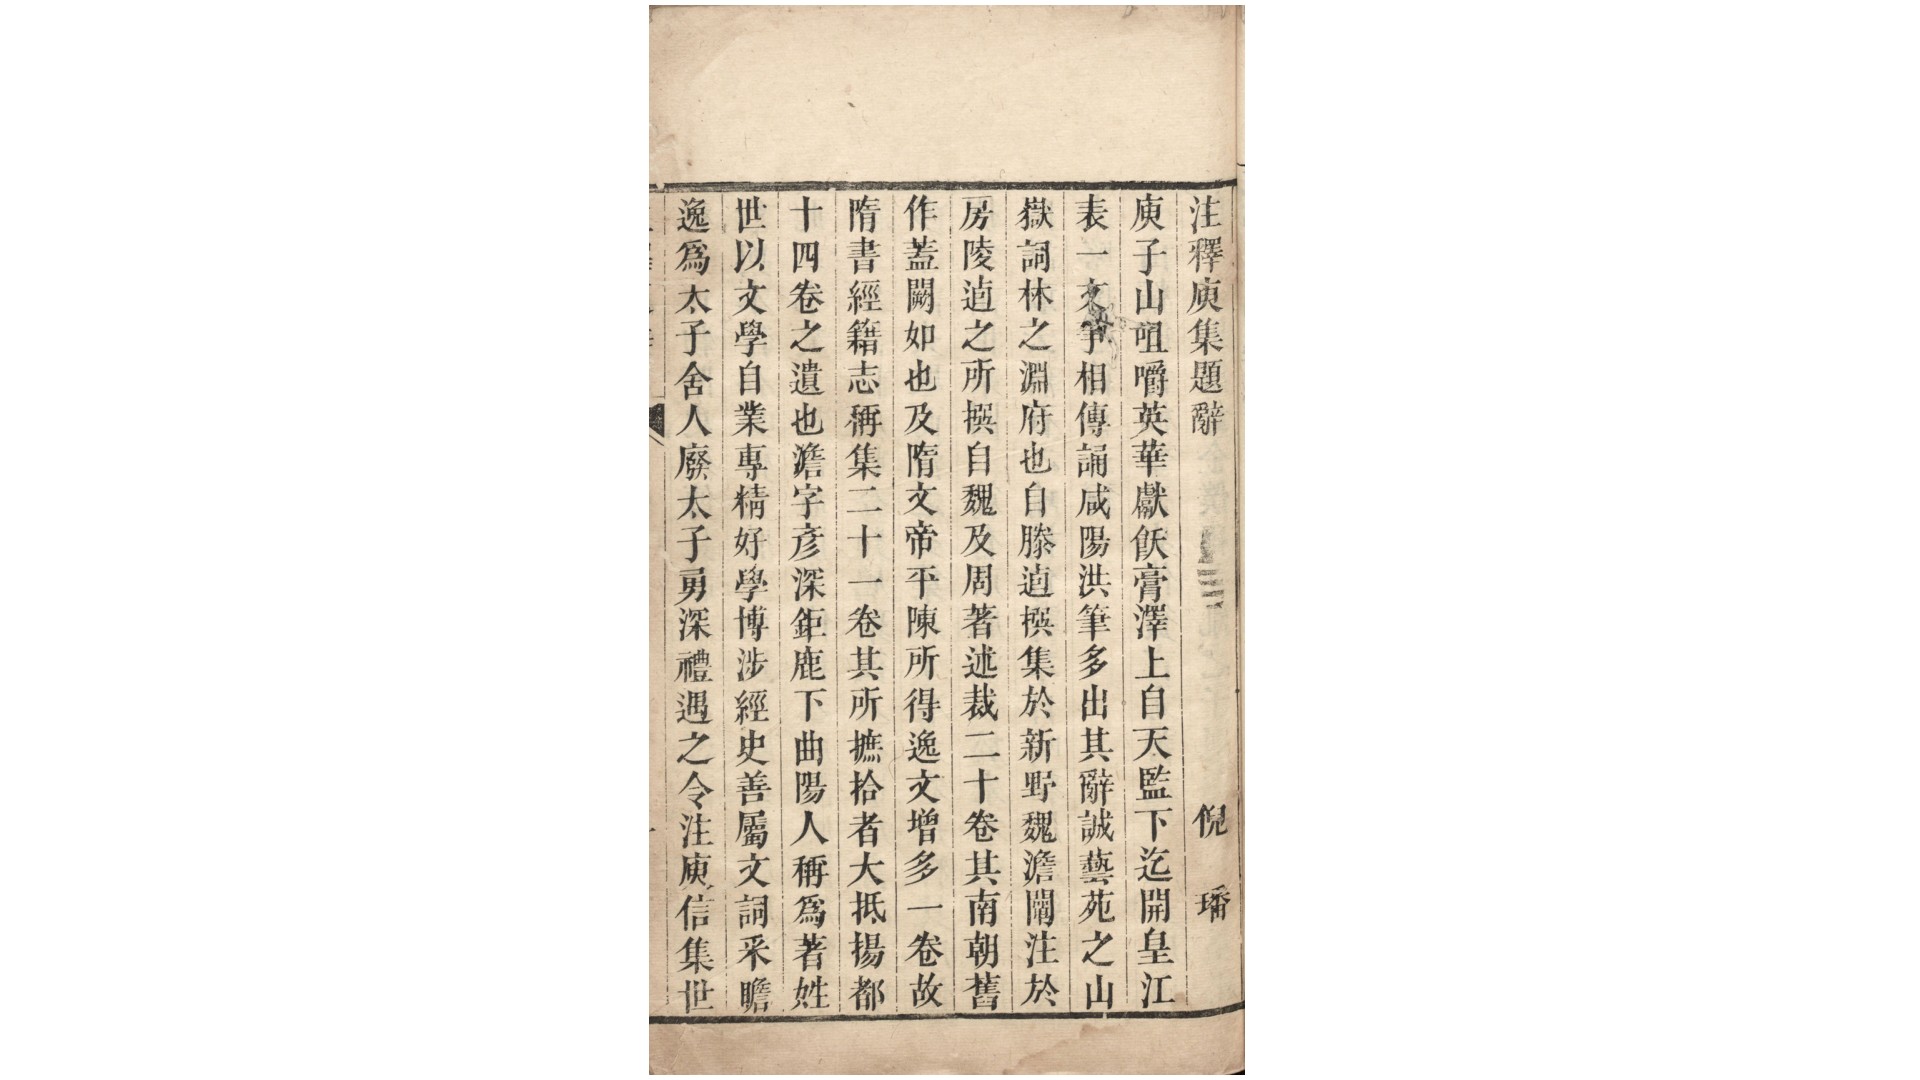 注釋庾集題辭 倪璠
庾子山咀嚼英華猒飫膏澤上自天監下迄開皇江
表一文爭相傳誦咸陽洪筆多出其辭誠藝苑之山
嶽詞林之淵府也自滕逌撰集於新野魏澹闡注於
房陵逌之所撰自魏及周著述裁二十卷其南朝舊
作蓋闕如也及隋文帝平陳所得逸文增多一卷故
隋書經籍志稱集二十一卷其所摭拾者大抵揚都
十四卷之遺也澹字彥深鉅鹿下曲陽人稱爲著姓
世以文學自業專精好學博涉經史善屬文詞采贍
逸爲太子舍人廢太子勇深禮遇之令注庾信集世